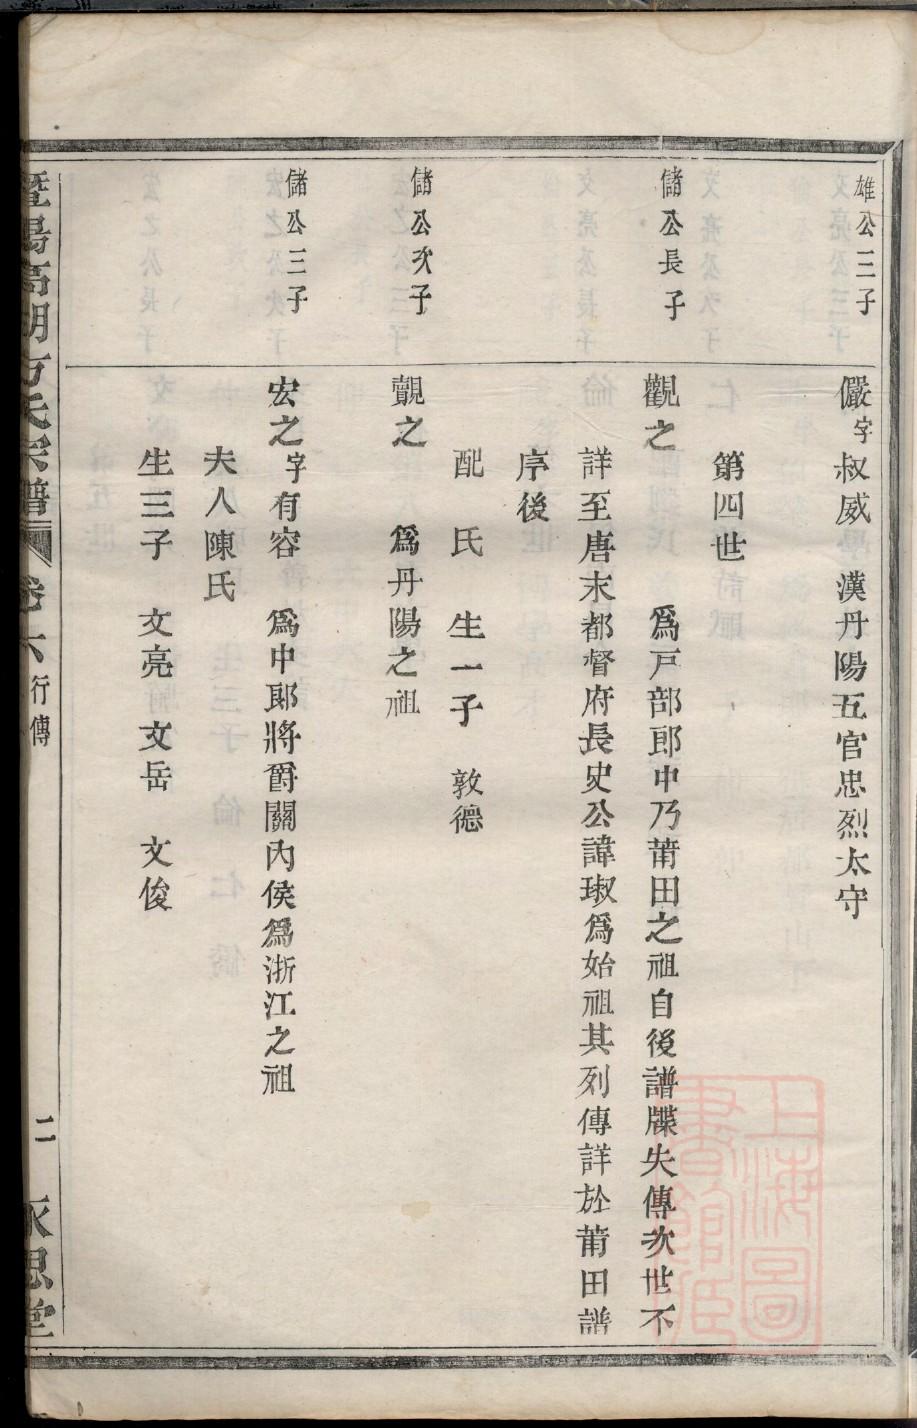 雄公三子
儼字叔威 漢丹陽五官忠烈太守
第四世
儲公長子
觀之 爲戸部郎中乃莆田之祖自後譜牒失傳次世不
詳至唐末都督府長史公諱琡爲始祖其列傳詳於莆田譜
序後
配 氏 生一子 敦德
儲公次子
覿之 爲丹陽之祖
儲公三子
宏之字有容 爲中郎將爵關內侯爲浙江之祖
夫人陳氏
生三子 文亮 文岳 文俊
暨陽高湖方氏宗譜 卷六 行傳 二 永思堂
上海圖書館藏